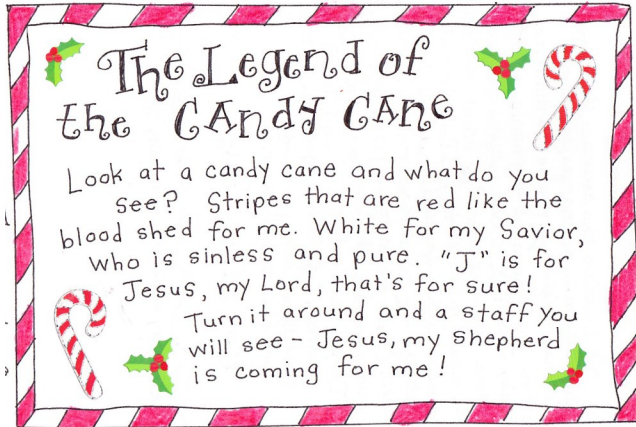 The Legend of
the CANdy CANe
Look at a candy cane and what do you
see? Stripes that are red like the
blood shed for me. White for my Savior,
who is sinless and pure. "J" is for
Jesus, my Lord, that's for sure!
Turn it around and a staff you
will see - Jesus, my Shepherd
is coming for me!